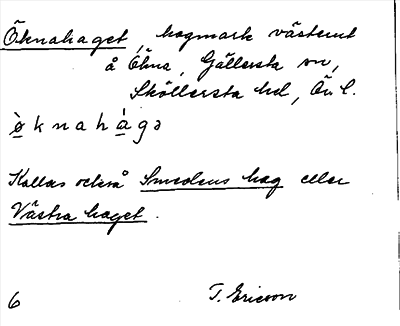 Öknahaget, hagmark västerut
å Ökna, Gällersta sn,
Sköllersta hd, Ör l.
ø̀knahàgə
Kallas också Smedens hag eller
Västra haget.
6 T. Ericson